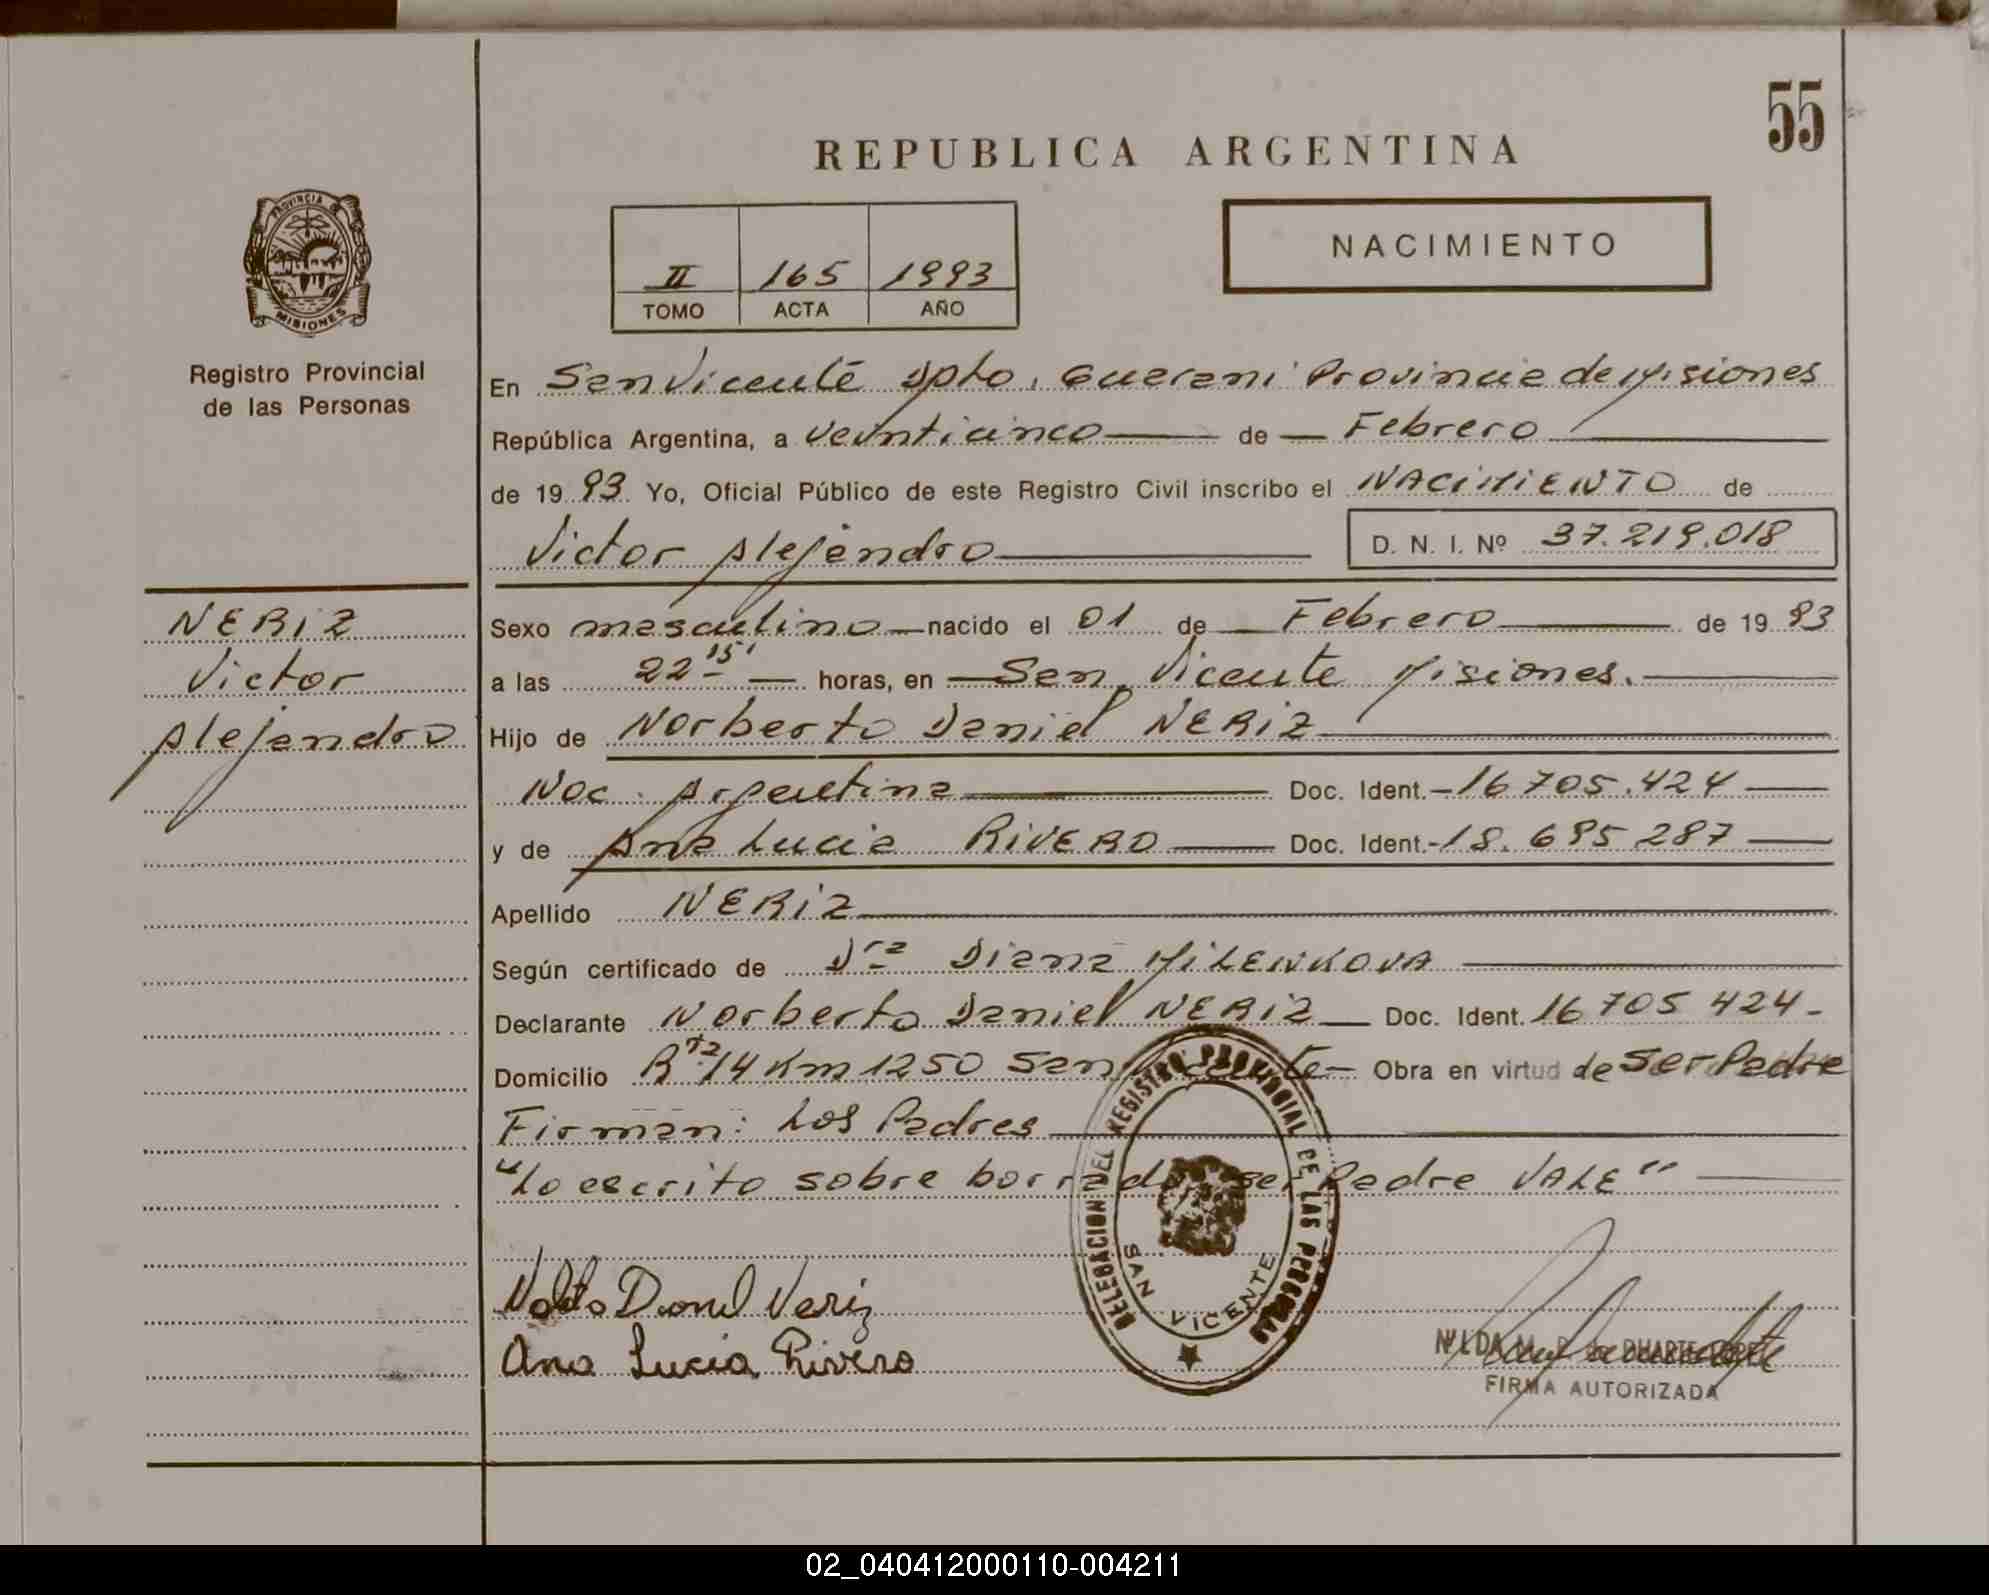 55
REPUBLICA ARGENTINA
PROVINCIA DE
MISIONES
Registro Provincial
de las Personas
II 165 1993
TOMO ACTA AÑO
NACIMIENTO
En San Vicente Dpto. Guarani Provincia de Misiones
República Argentina, a veinticinco de Febrero
de 19 93 Yo, Oficial Público de este Registro Civil inscribo el NACIMIENTO de
Victor Alejandro D. N. I. Nº 37.219.018
NERIZ
Victor
Alejandro
Sexo masculino nacido el 01 de Febrero de 19 93
a las 22 15' horas, en San Vicente Misiones.
Hijo de Norberto Daniel NERIZ
Nac. Argentina Doc. Ident. 16 705.424
y de Ana Lucia RIVERO Doc. Ident. 18.695 287
Apellido NERIZ
Según certificado de Dra Diana MILENKOVA
Declarante Norberto Daniel NERIZ Doc. Ident. 16 705 424
Domicilio R ta 14 Km 1250 San Obra en virtud de ser Padre
Firman: Los Padres
"Lo escrito sobre borrado: ser Padre VALE"
DELEGACION DEL REGISTRO PROVINCIAL DE LAS PERSONAS
SAN VICENTE
Daniel Neriz
Ana Lucia Rivero
NILDA M. DUARTE
FIRMA AUTORIZADA
02_040412000110-004211